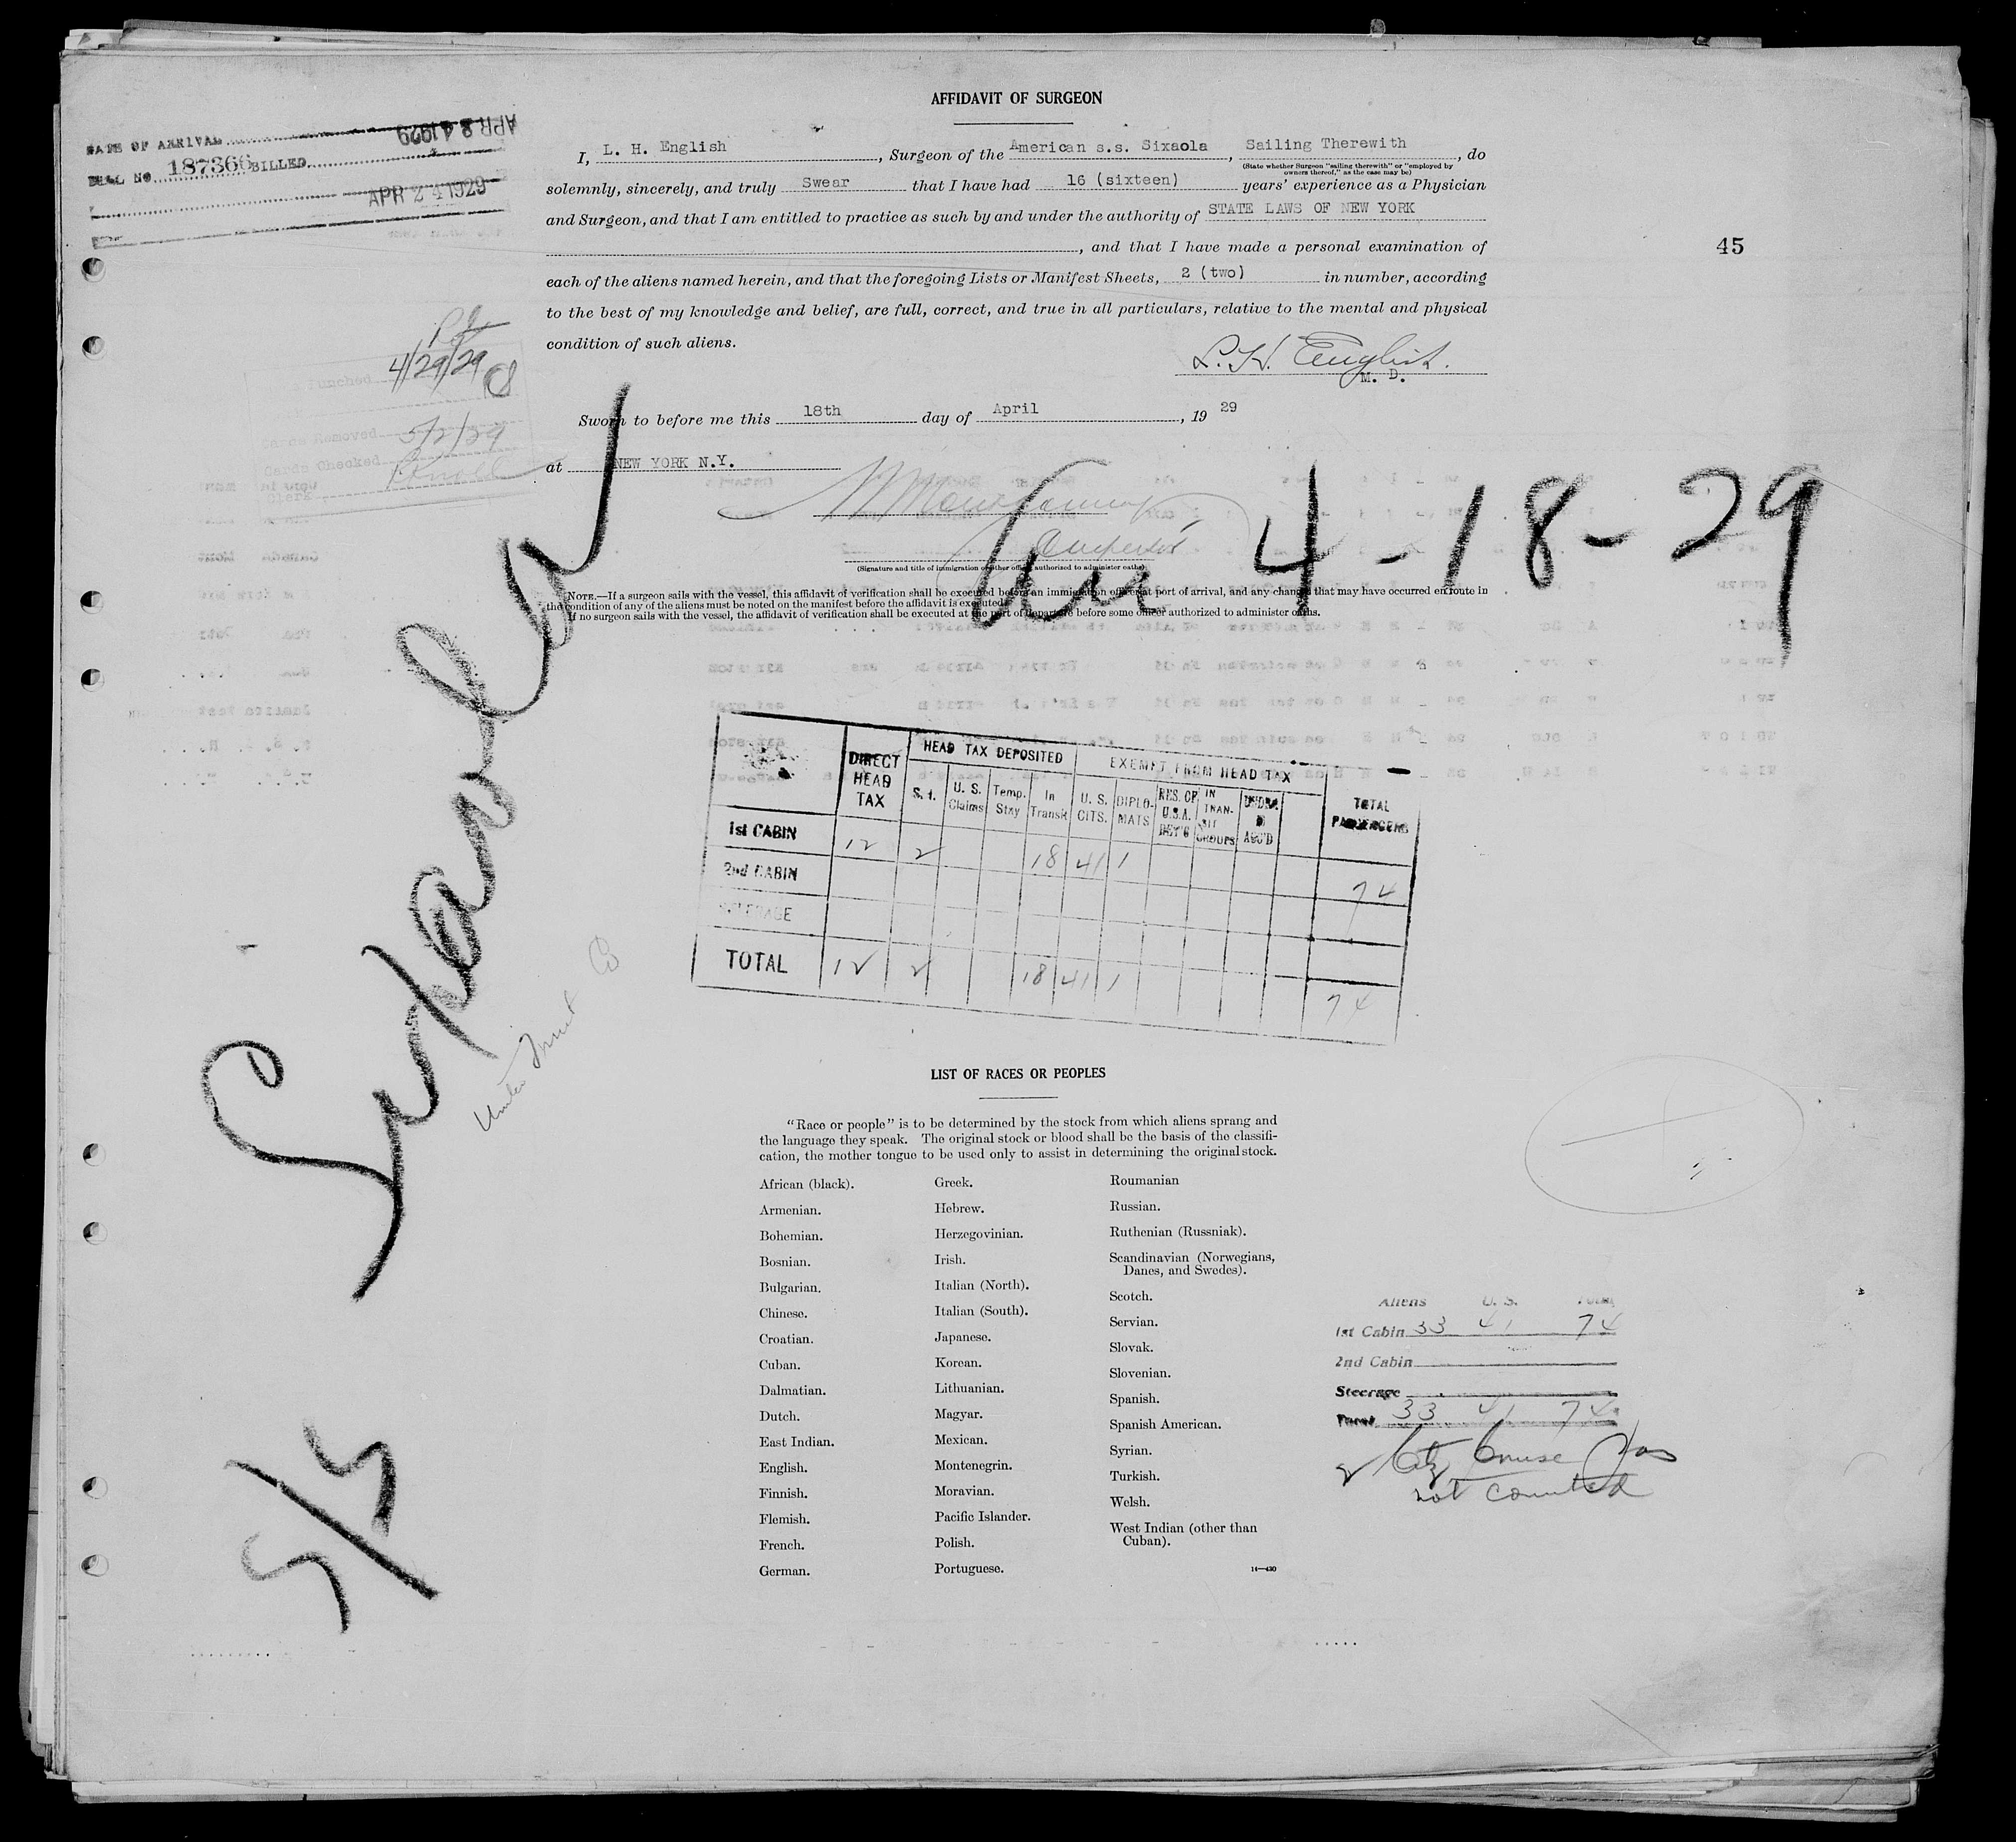 AFFIDAVIT OF SURGEON
DATE OF ARRIVAL
BILL No 187366 BILLED
APR 24 1929
I, L. H. English, Surgeon of the American s.s. Sixaola, Sailing Therewith, do
(State whether Surgeon "sailing therewith" or "employed by
owners thereof," as the case may be)
solemnly, sincerely, and truly Swear that I have had 16 (sixteen) years' experience as a Physician
and Surgeon, and that I am entitled to practice as such by and under the authority of STATE LAWS OF NEW YORK
, and that I have made a personal examination of
45
each of the aliens named herein, and that the foregoing Lists or Manifest Sheets, 2 (two) in number, according
to the best of my knowledge and belief, are full, correct, and true in all particulars, relative to the mental and physical
condition of such aliens.
L. H. English.
M. D.
Punched 4/29/29
Cards Removed 5/2/29
Cards Checked
Clerk
Sworn to before me this 18th day of April, 19 29
at NEW YORK N.Y.
(Signature and title of immigration or other officer authorized to administer oaths)
4-18-29
NOTE.—If a surgeon sails with the vessel, this affidavit of verification shall be executed before an immigration officer at port of arrival, and any changes that may have occurred en route in
the condition of any of the aliens must be noted on the manifest before the affidavit is executed.
If no surgeon sails with the vessel, the affidavit of verification shall be executed at the port of departure before some officer authorized to administer oaths.
Sixaola
S/S
DIRECT HEAD TAX
HEAD TAX DEPOSITED
EXEMPT FROM HEAD TAX
TOTAL PASSENGERS
S. I. U. S. Claims Temp. Stay In Transit U. S. CITS. DIPLOMATS RES. OF U.S.A. RET'G IN TRANSIT GROUPS
1st CABIN 12 2 18 41 1 74
2nd CABIN
STEERAGE
TOTAL 12 2 18 41 1 74
LIST OF RACES OR PEOPLES
"Race or people" is to be determined by the stock from which aliens sprang and
the language they speak. The original stock or blood shall be the basis of the classifi-
cation, the mother tongue to be used only to assist in determining the original stock.
African (black).
Armenian.
Bohemian.
Bosnian.
Bulgarian.
Chinese.
Croatian.
Cuban.
Dalmatian.
Dutch.
East Indian.
English.
Finnish.
Flemish.
French.
German.
Greek.
Hebrew.
Herzegovinian.
Irish.
Italian (North).
Italian (South).
Japanese.
Korean.
Lithuanian.
Magyar.
Mexican.
Montenegrin.
Moravian.
Pacific Islander.
Polish.
Portuguese.
Roumanian
Russian.
Ruthenian (Russniak).
Scandinavian (Norwegians,
Danes, and Swedes).
Scotch.
Servian.
Slovak.
Slovenian.
Spanish.
Spanish American.
Syrian.
Turkish.
Welsh.
West Indian (other than
Cuban).
14—430
Aliens U. S. Total
1st Cabin 33 41 74
2nd Cabin
Steerage
Total 33 41 74
Cruise
not counted